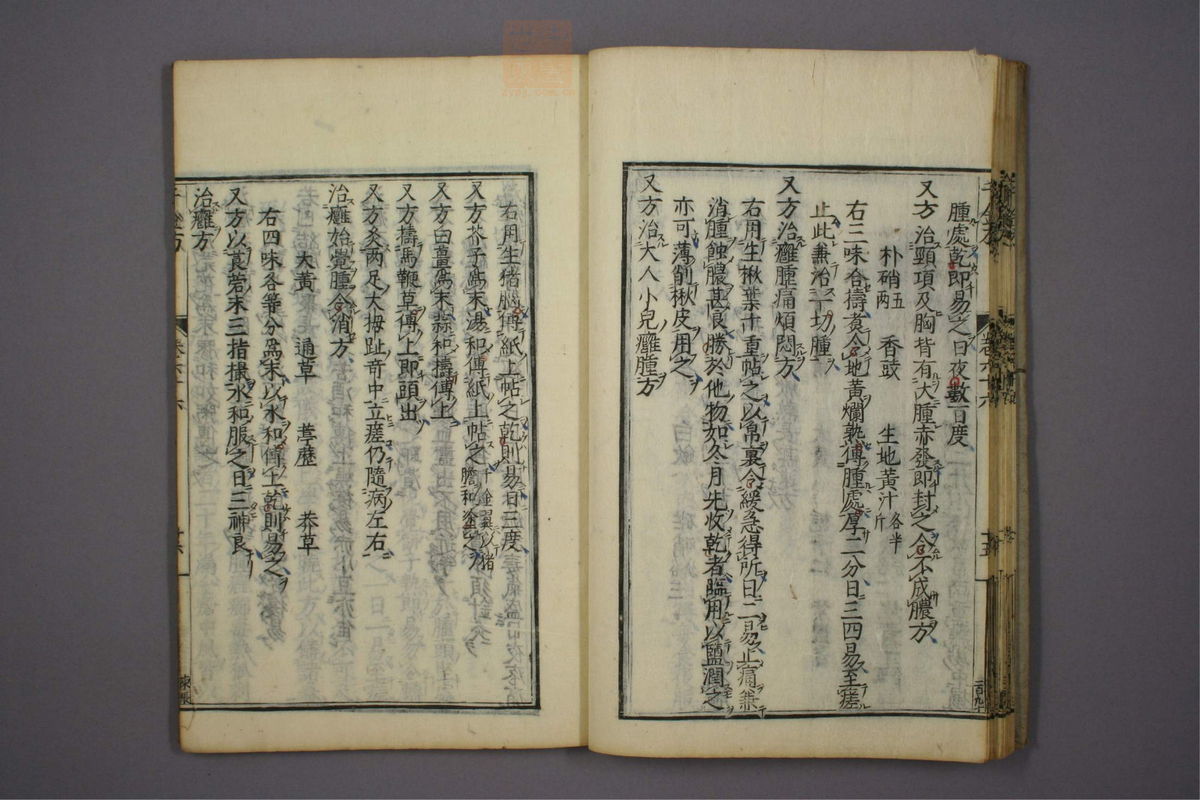 腫處乾即易之日夜數百度
又方治頸項及胸背有大腫赤發即封之令不成膿方
朴硝五兩 香豉 生地黃汁各半斤
右三味合擣煑令地黃爛熟傅腫處厚二分日三四易至瘥
止此兼治一切腫
又方治癰腫痛煩悶方
右用生楸葉十重帖之以帛裹令緩急得所日二易止痛兼
消腫蝕膿甚良勝於他物如冬月先收乾者臨用以鹽潤之
亦可薄削楸皮用之
又方治大人小兒癰腫方
右用生猪腦傅紙上帖之乾則易日三度
又方芥子爲末湯和傅紙上帖之千金翼以猪膽和塗之
又方白薑爲末蒜和擣傅上
又方擣馬鞭草傅上即頭出
又方灸兩足大拇趾奇中立瘥仍隨病左右
治癰始覺腫令消方
大黃 通草 葶藶 莽草
右四味各等分爲末以水和傅上乾則易之
又方以莨菪末三指撮水和服之日三神良
治癰方